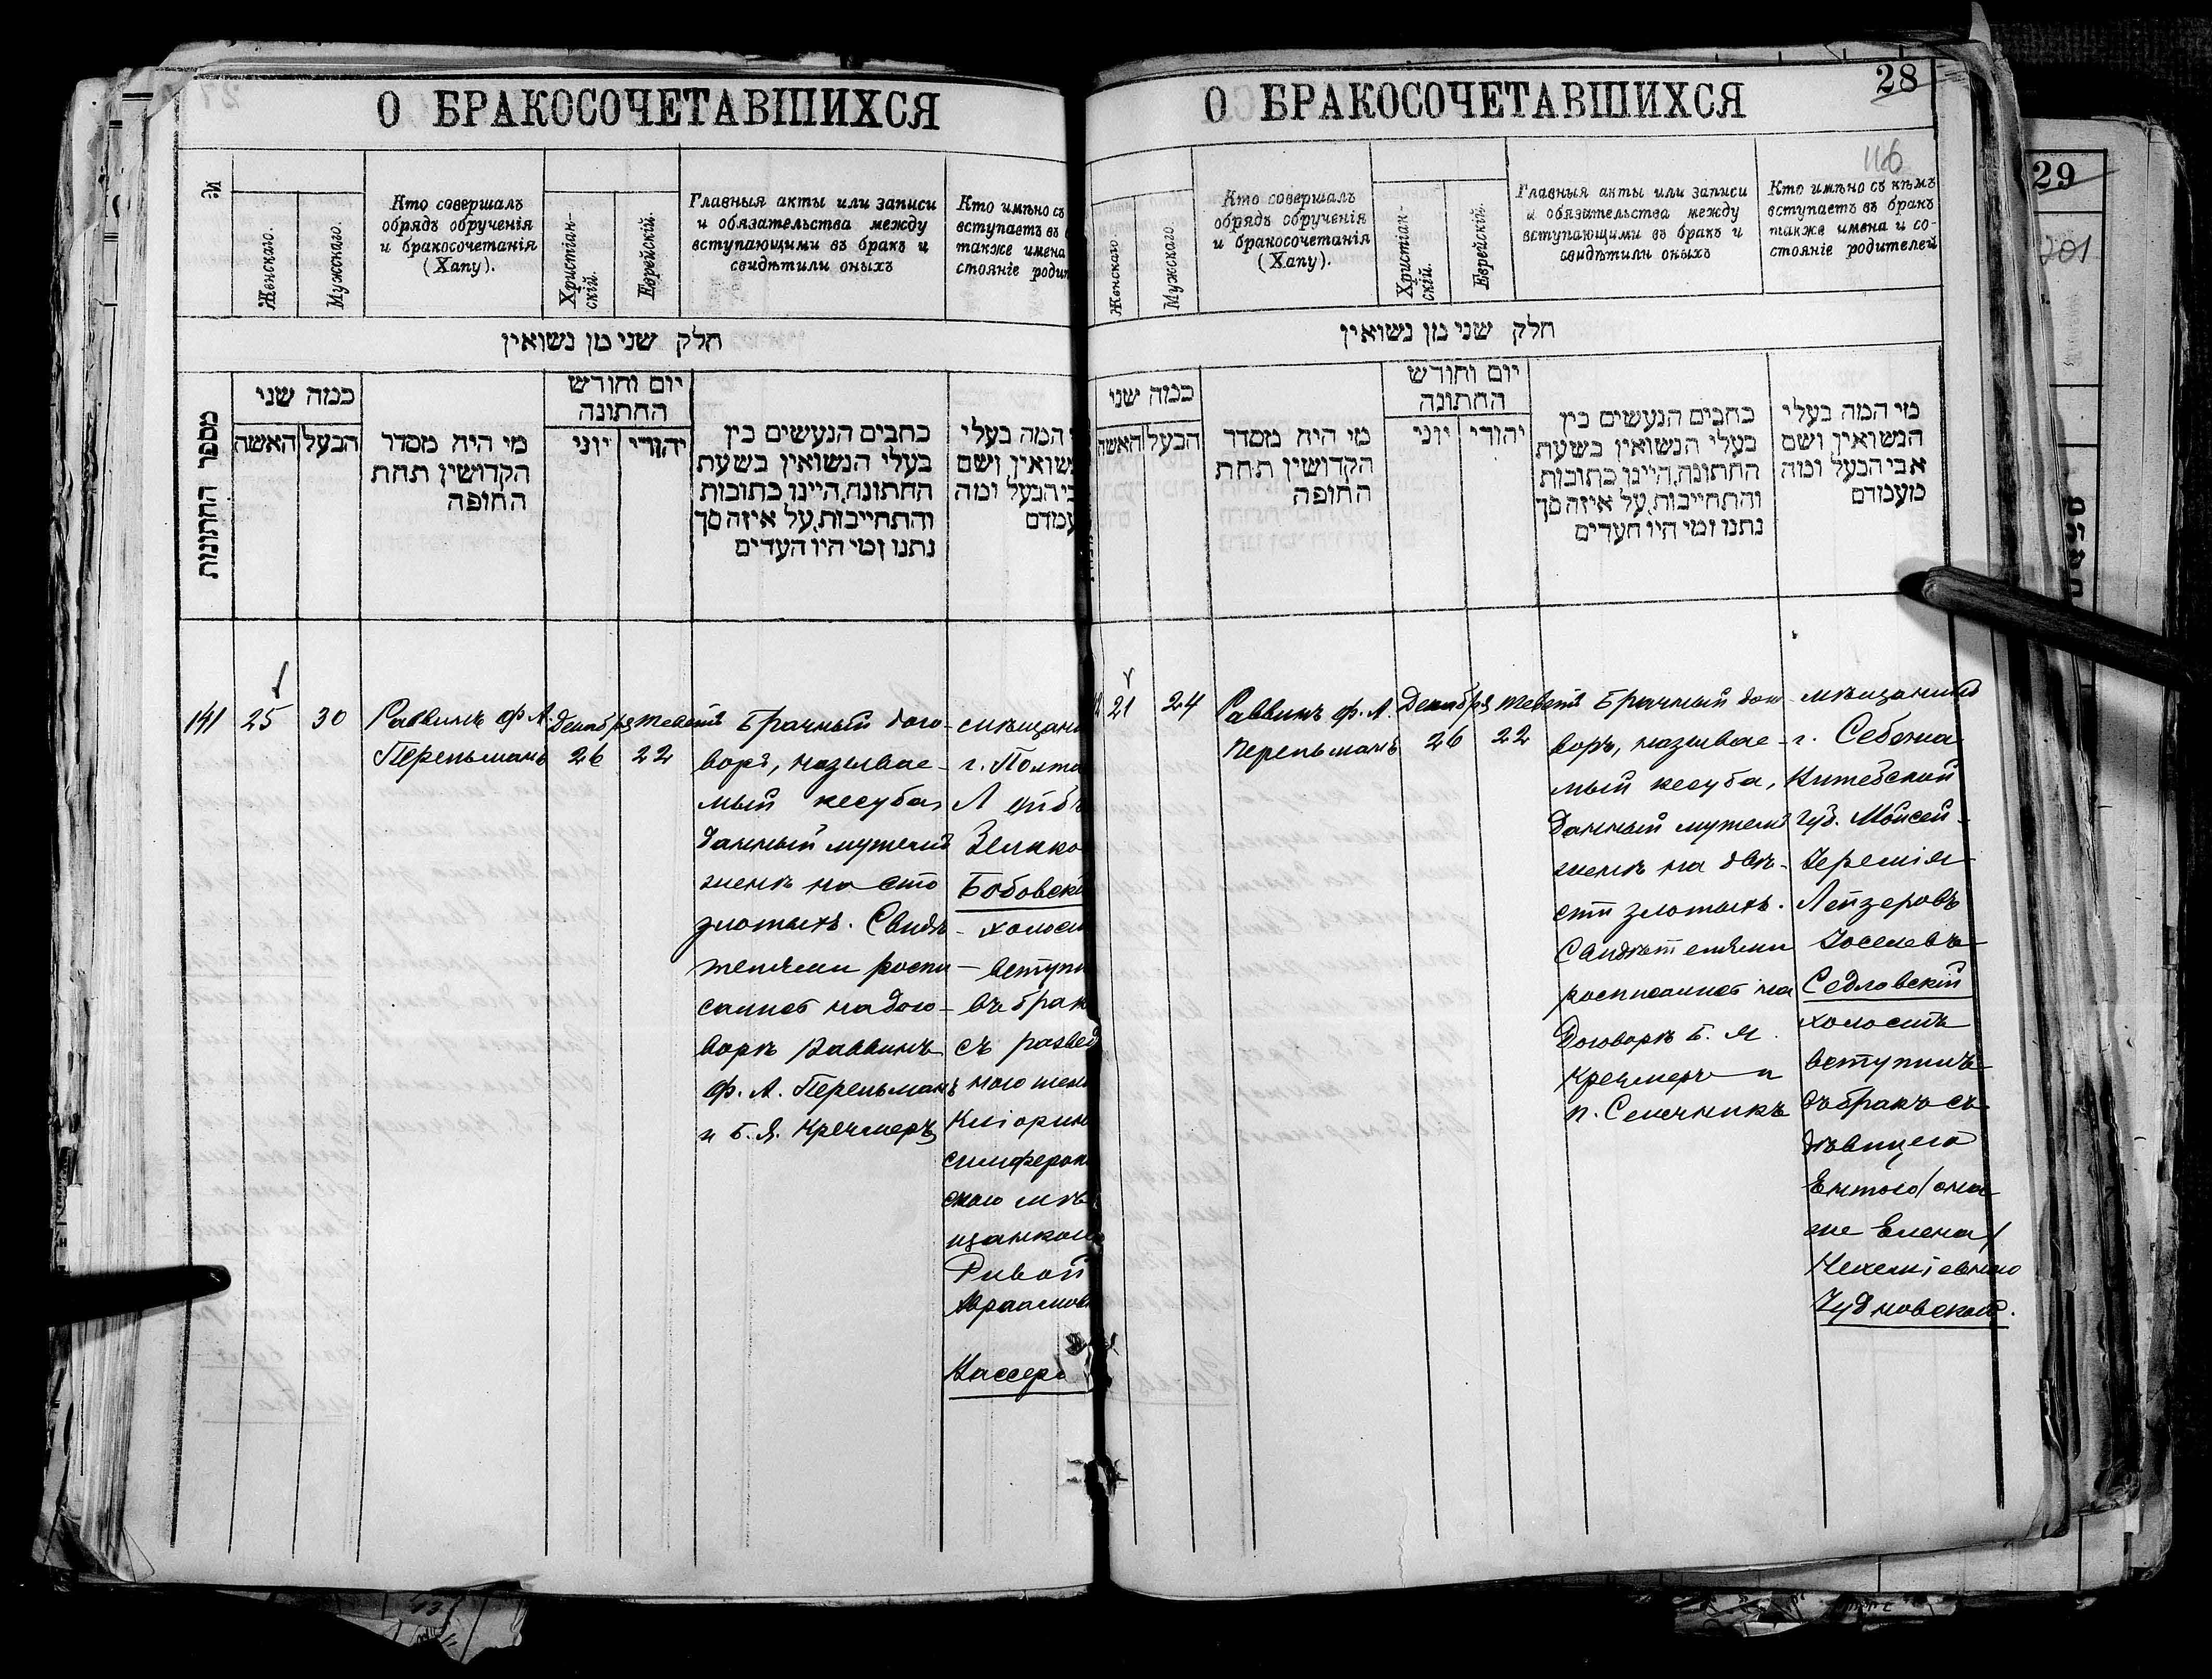 О БРАКОСОЧЕТАВШИХСЯ
№
Женскаго.
Мужскаго.
Кто совершалъ
обрядъ обрученія
и бракосочетанія
(Хапу).
Христіан-
скій.
Еврейскій.
Главныя акты или записи
и обязательства между
вступающими въ бракъ и
свидѣтили оныхъ
Кто имѣно съ
вступаетъ въ
также имена
стояніе роди
חלק שני מן נשואין
מספר החתונות
כמה שני
האשה
הבעל
מי היה מסדר
הקדושין תחת
החופה
יום וחורש
החתונה
יוני
יהודי
כתבים הנעשים בין
בעלי הנשואין בשעת
החתונה, היינו כתובות
והתחייבות, על איזה סך
נתנו ומי היו העדים
המה בעלי
שואין ושם
בי הבעל ומה
עמדם
141
25
30
Раввинъ Ф. А.
Перельманъ
Декабря
26
Тевета
22
Брачный дого-
воръ, называе-
мый кесуба,
данный мужемъ
женѣ на сто
злотыхъ. Свидѣ-
телями роспи-
сались на дого-
ворѣ Раввинъ
Ф. А. Перельманъ
и Б. Я. Кречмеръ
г. Полта
Лейб
Зелико
Бобовскі
холос
вступи
въ брак
съ развед
ною жен
симфероп
скаго мѣ
щанкою
Ривой
Авраамов
О БРАКОСОЧЕТАВШИХСЯ
28
116
Женскаго
Мужскаго.
Кто совершалъ
обрядъ обрученія
и бракосочетанія
(Хапу).
Христіан-
скій.
Еврейскій.
Главныя акты или записи
и обязательства между
вступающими въ бракъ и
свидѣтили оныхъ
Кто имѣно съ кѣмъ
вступаетъ въ бракъ
также имена и со-
стояніе родителей
חלק שני מן נשואין
כמה שני
האשה
הבעל
מי היה מסדר
הקדושין תחת
החופה
יום וחורש
החתונה
יוני
יהודי
כתבים הנעשים בין
בעלי הנשואין בשעת
החתונה, היינו כתובות
והתחייבות, על איזה סך
נתנו ומי היו העדים
מי המה בעלי
הנשואין ושם
אבי הבעל ומה
מעמדם
21
24
Раввинъ Ф. А.
Перельманъ
Декабря
26
Тевета
22
Брачный дого-
воръ, называе-
мый кесуба,
данный мужемъ
женѣ на двѣ-
сти злотыхъ.
Свидѣтелями
росписались на
договорѣ Б. Я.
Кречмеръ и
П. Сенчникъ
мѣщанинъ
г. Себежа
Витебской
губ. Мойсей-
Іеремія
Лейзеровъ
Іоселевъ
Седловскій
холостъ
вступилъ
въ бракъ съ
дѣвицею
Ентою /она
же Елена/
Нехеміевною
Чудновской.
29
201